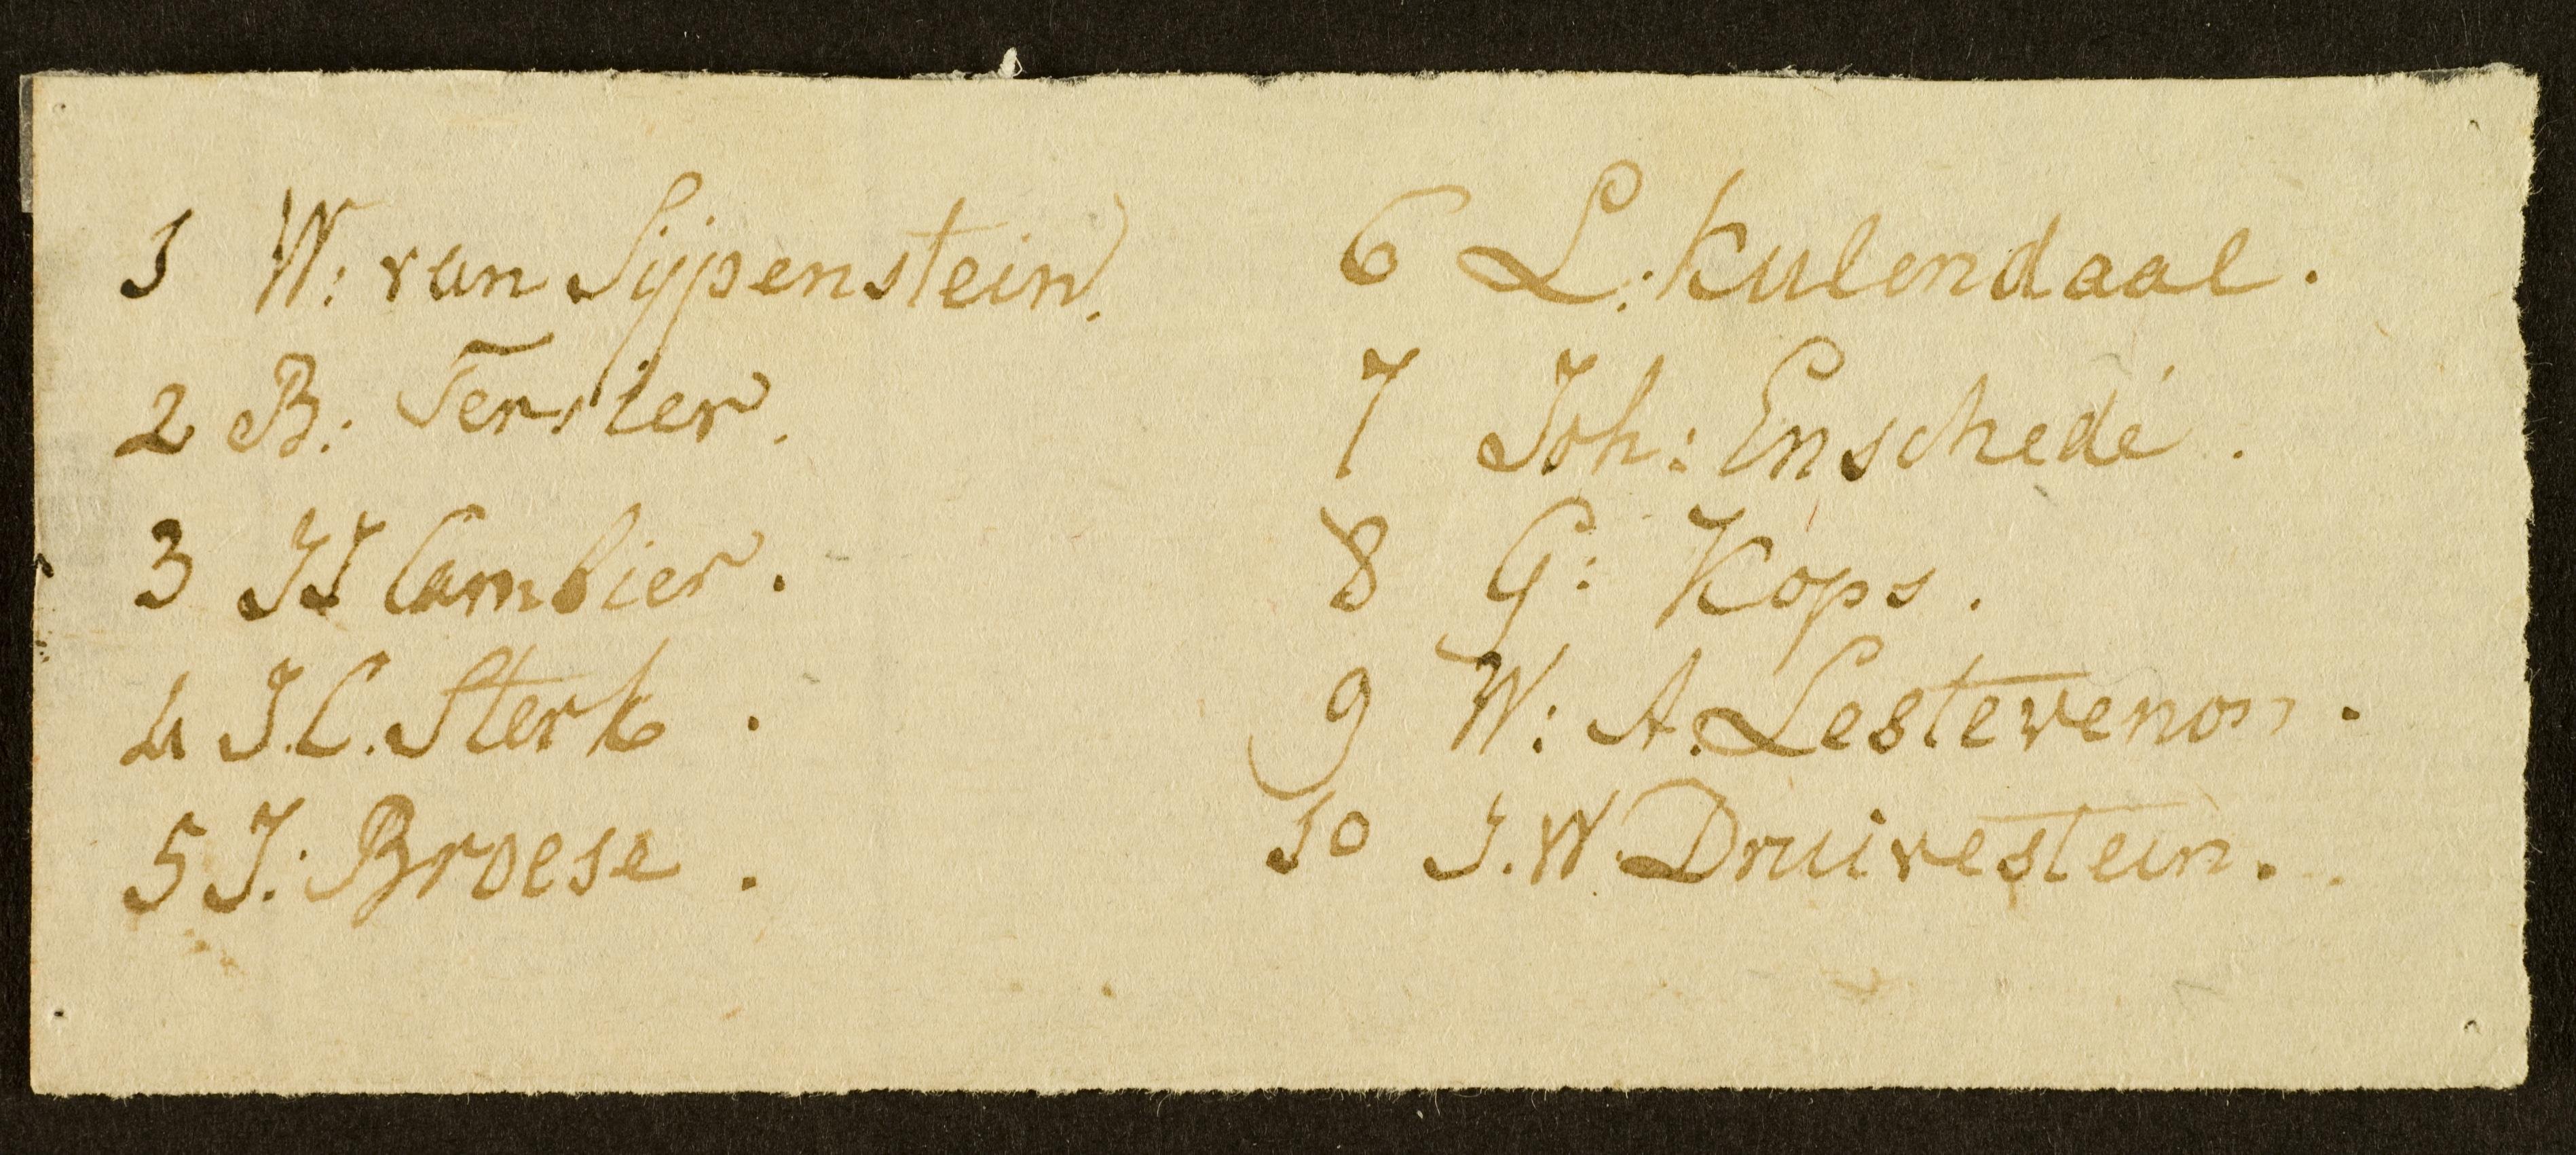 1 W: van Sijpenstein.
2 B: Terster.
3 JJ Cambier.
4 J.C. Sterk.
5 J: Broese.
6 L: Kulendaal.
7 Joh: Enschedé.
8 G: Kops.
9 W: A. Lestevenon.
10 J.W. Druivestein.